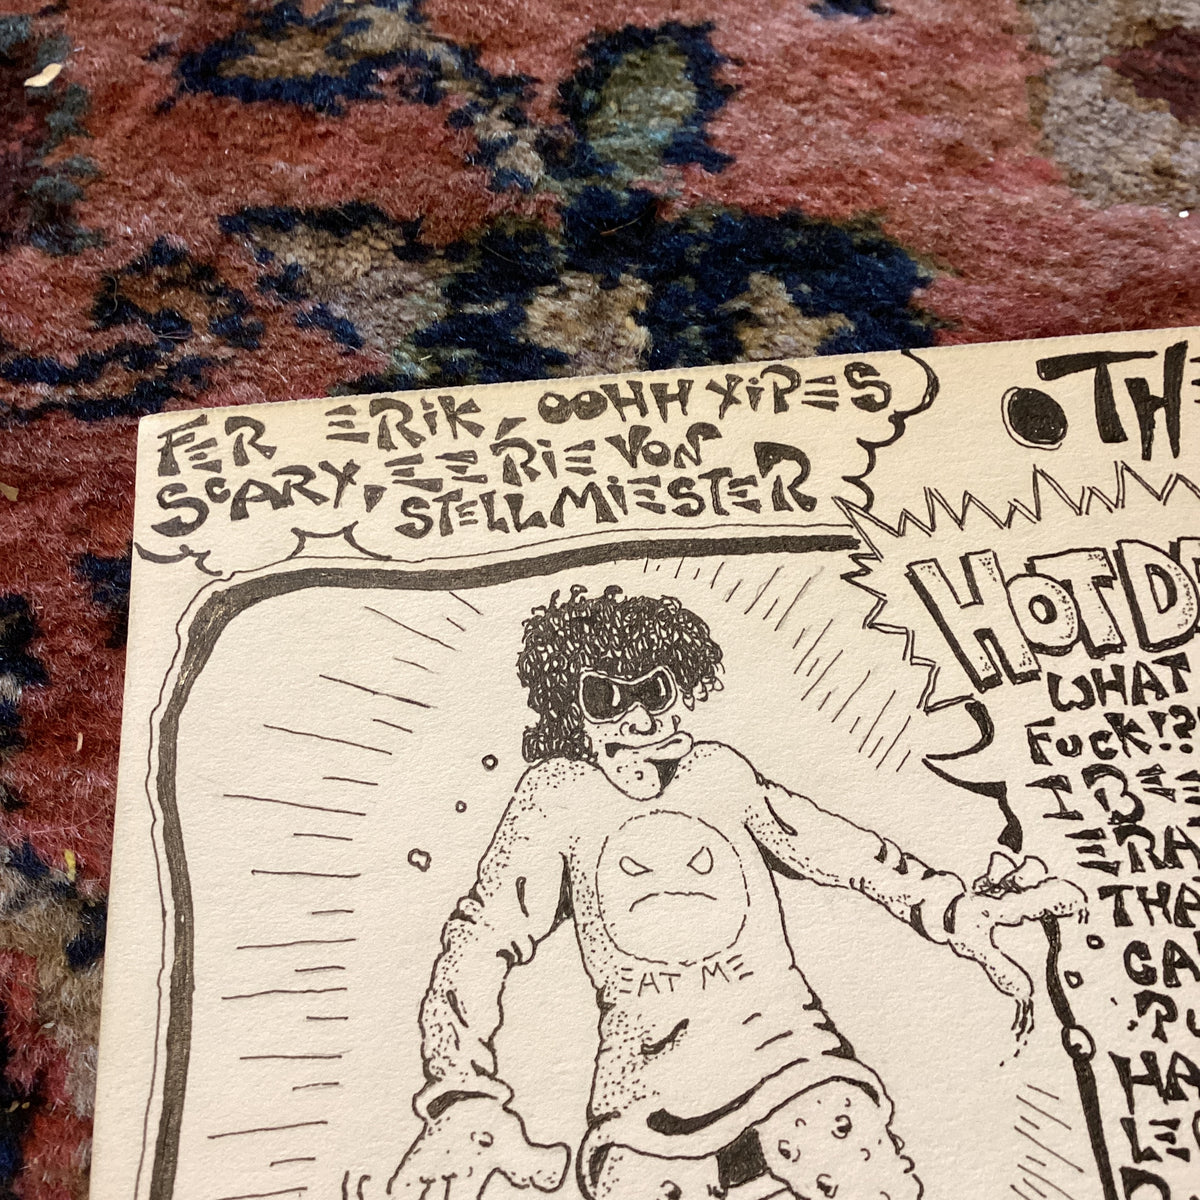 FER ERiK, OOHH YiPES
SCARY, EERiE VON
STELLMiESTER
THE
HOT D
WHAT
FUCK!?
I
ERA
THA
CA
EAT ME